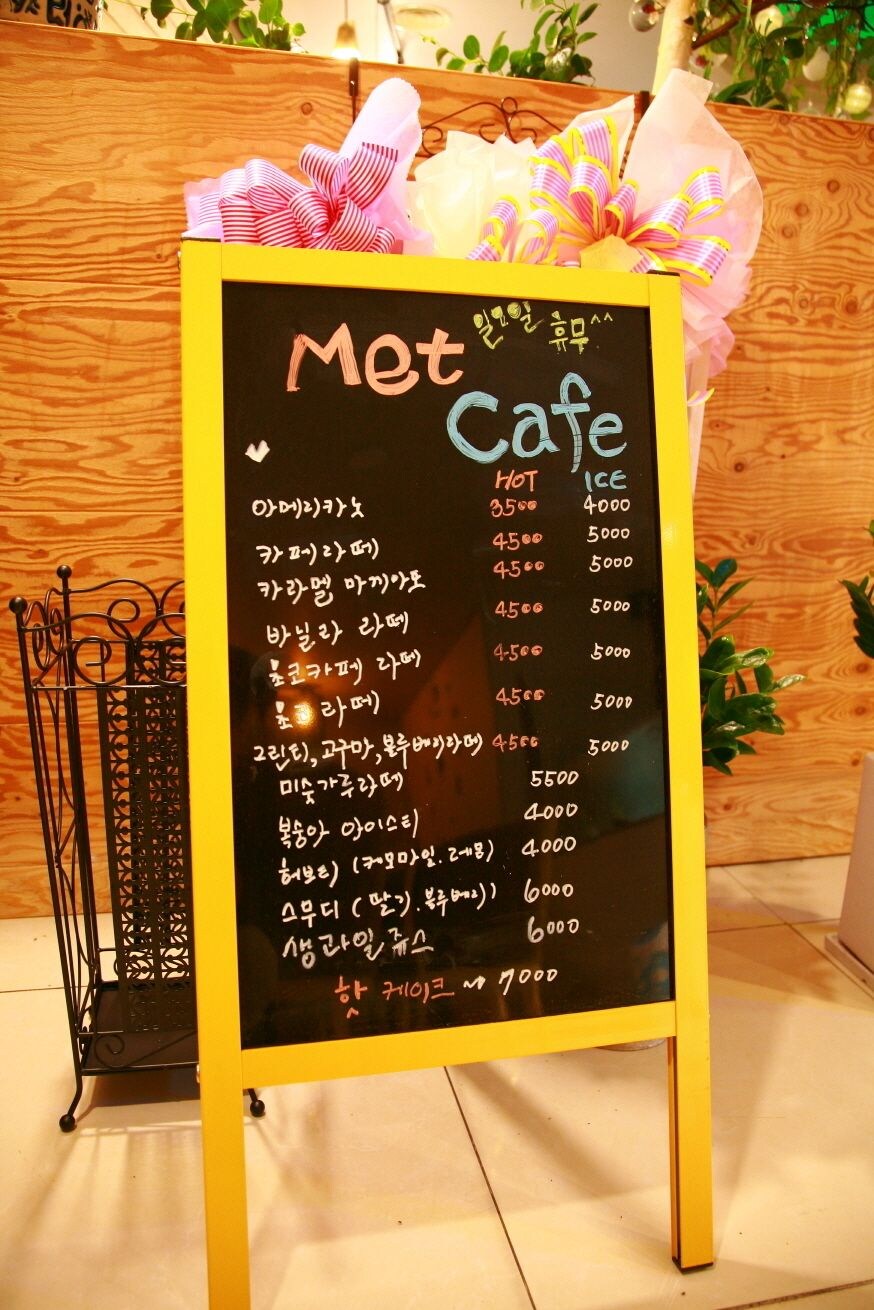 Met 일요일 휴무^^
Cafe
HOT ICE
아메리카노 3500 4000
카페라떼 4500 5000
카라멜 마끼아또 4500 5000
바닐라 라떼 4500 5000
초코카페 라떼 4500 5000
초코라떼 4500 5000
그린티, 고구마, 블루베리라떼 4500 5000
미숫가루라떼 5500
복숭아 아이스티 4000
허브티 (캐모마일. 레몬) 4000
스무디 (딸기. 블루베리) 6000
생과일 쥬스 6000
핫 케이크 ~> 7000